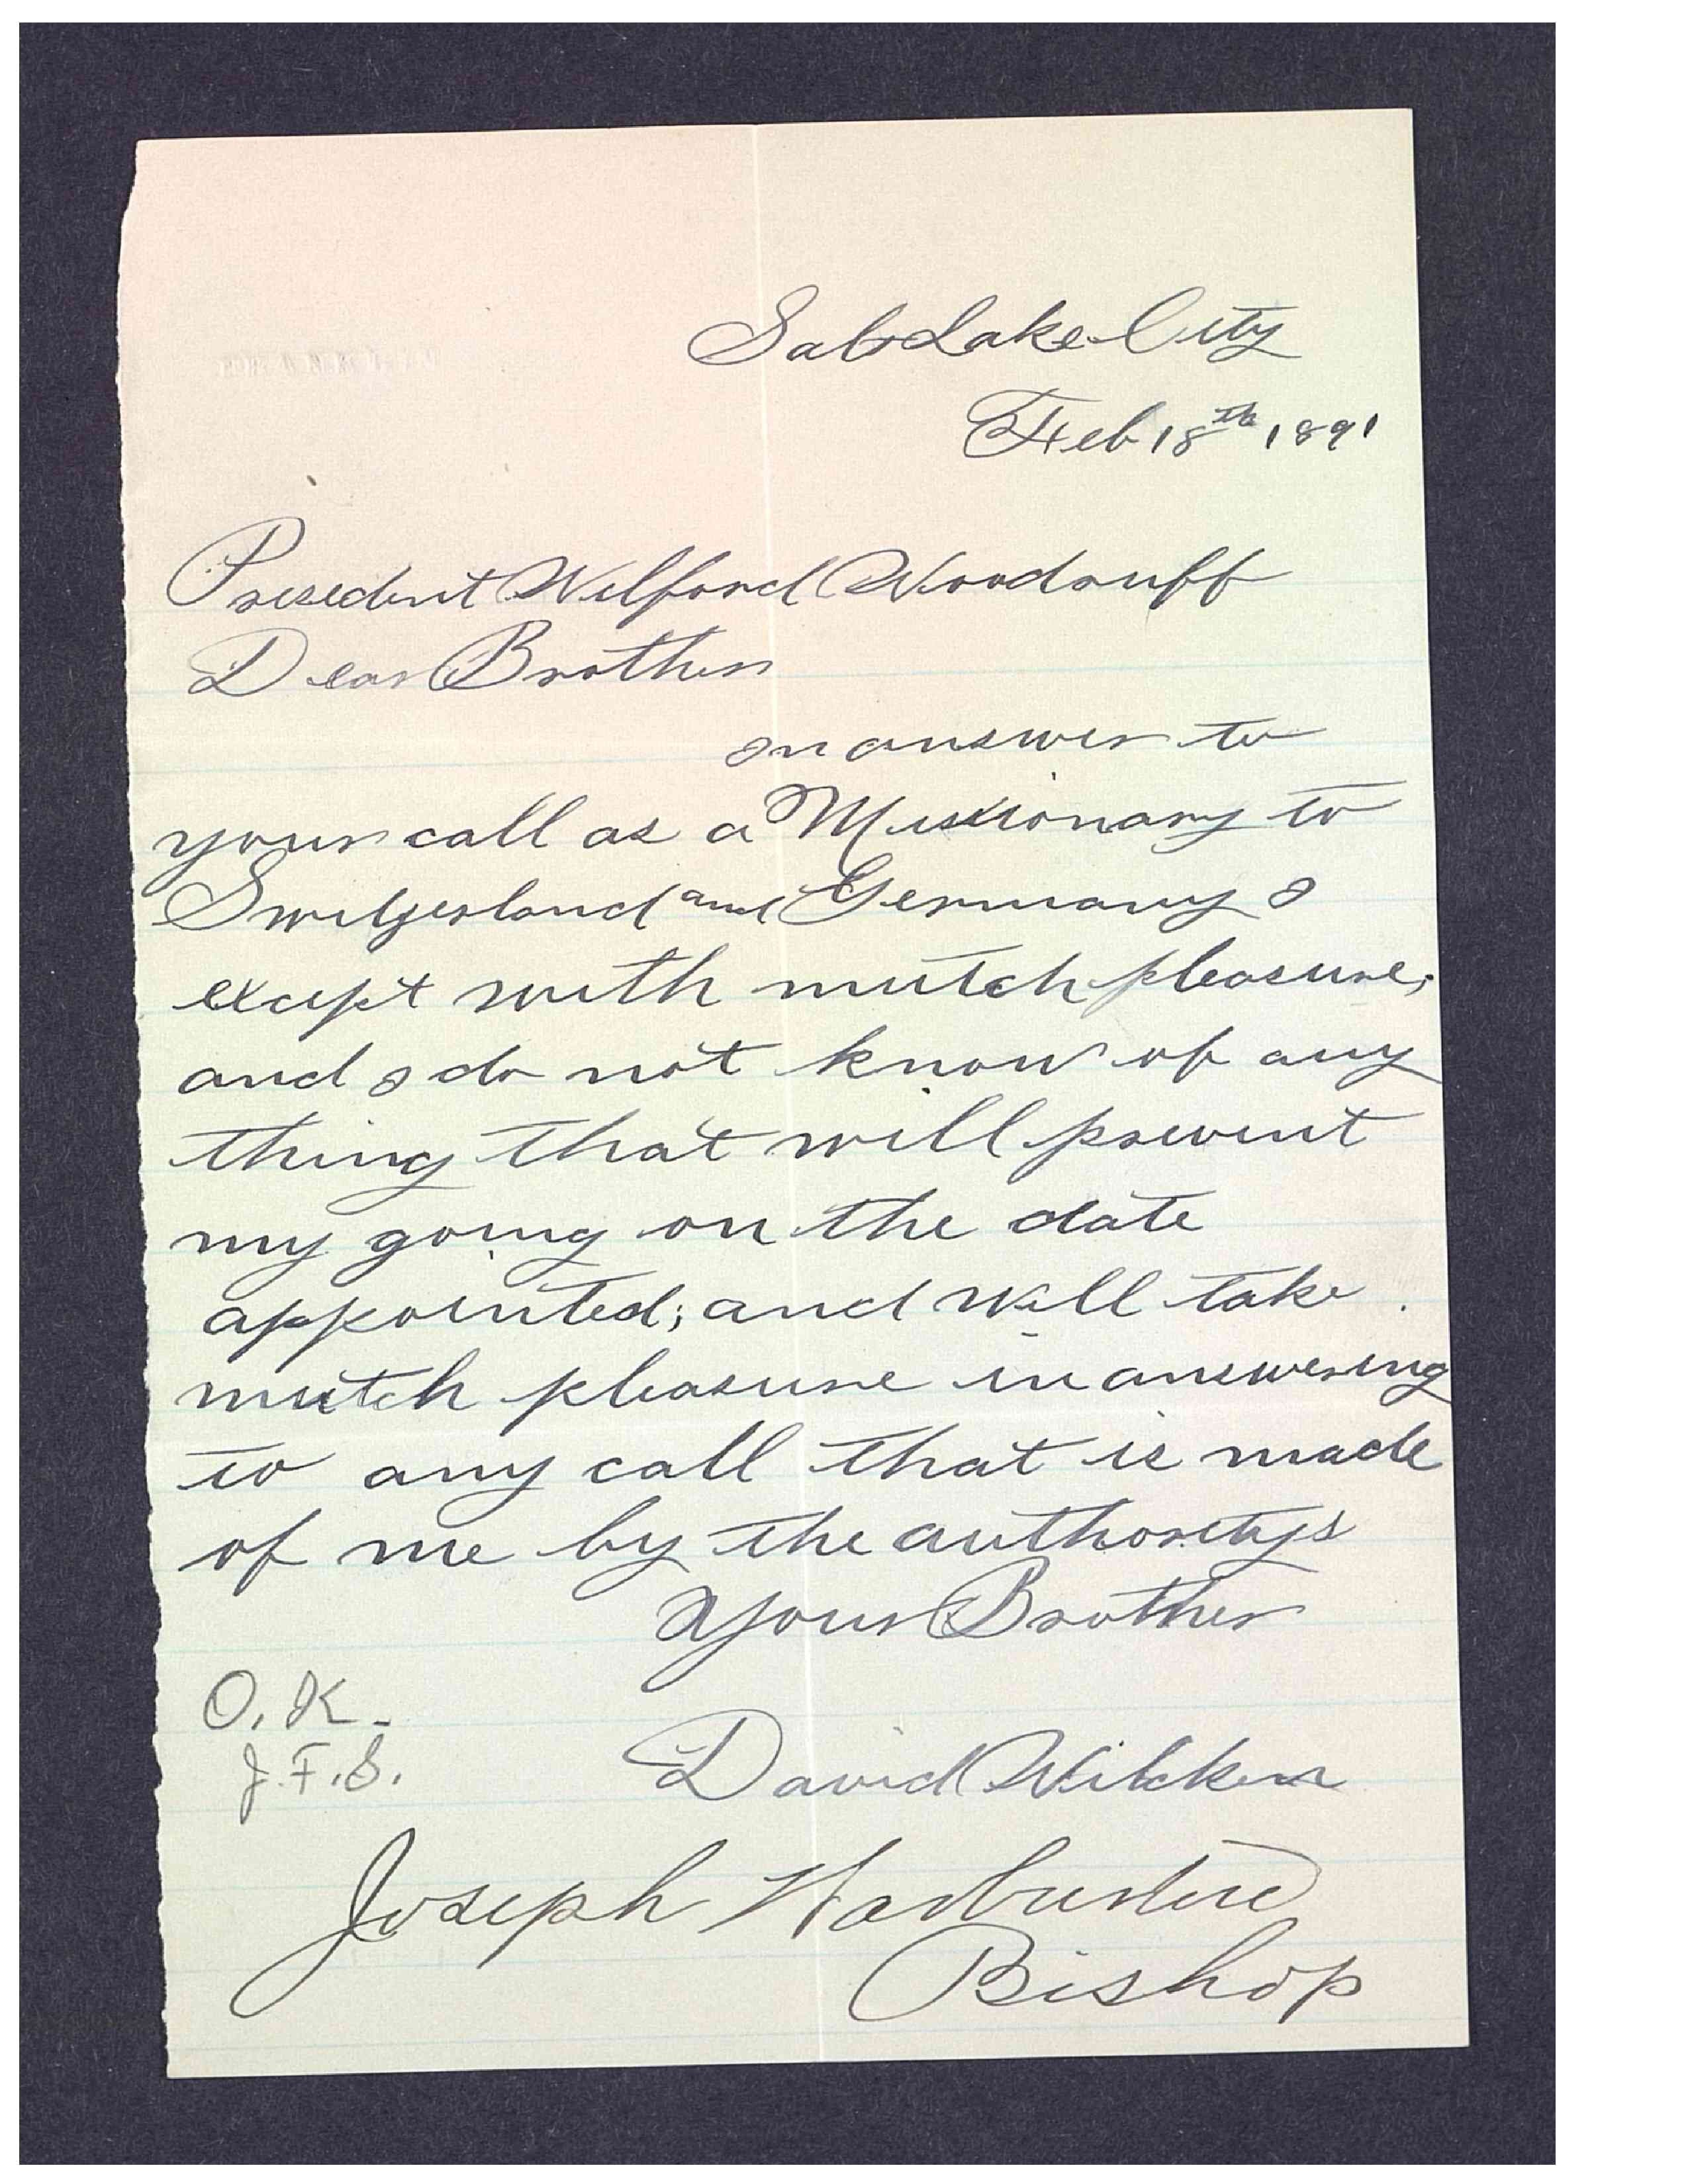 Salt Lake City
Feb 18th 1891
Presedent Wilford Woodruff
Dear Brother
In answer to
your call as a Missionary to
Switzerland and Germany I
except with mutch pleasure;
and I do not know of any
thing that will prevent
my going on the date
appointed; and will take
mutch pleasure in answering
to any call that is made
of me by the authoritys
Your Brother
O.K.
J.F.S.
David Wilcken
Joseph Warburton
Bishop